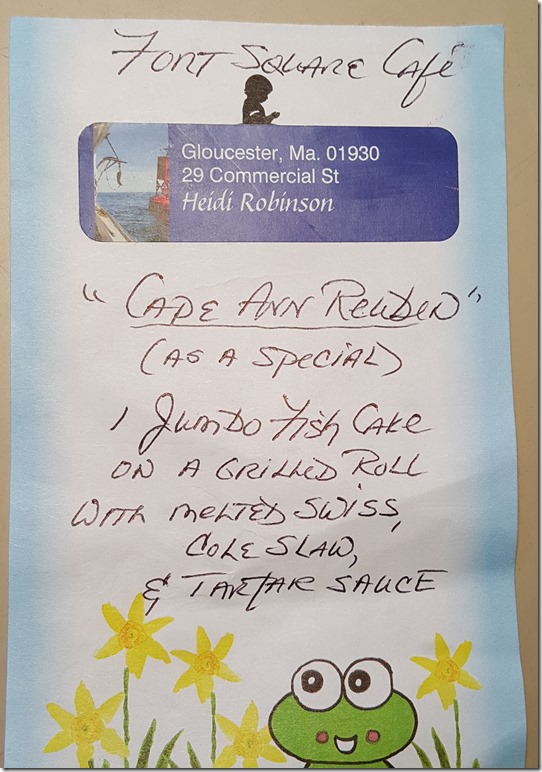 Fort Square Café
Gloucester, Ma. 01930
29 Commercial St
Heidi Robinson
"Cape Ann Reuben"
(as a special)
1 Jumbo Fish Cake
on a grilled Roll
with melted Swiss,
Cole Slaw,
& Tartar Sauce